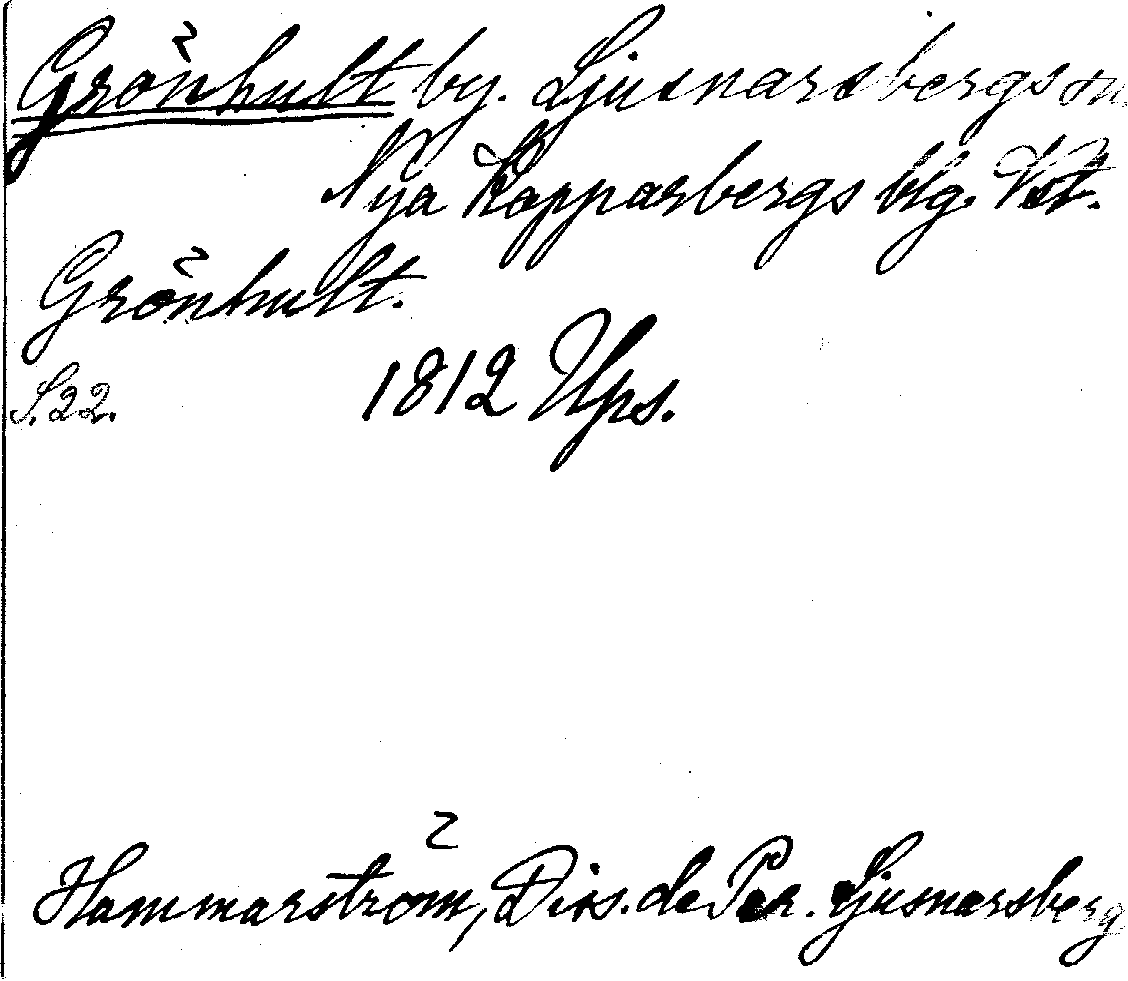 Grönhult by. Ljusnarsbergs sn.
Nya Kopparbergs blg. Vst.
Grönhult.
S. 22. 1812 Ups.
Hammarström, Dis. de Par. Ljusnarsberg